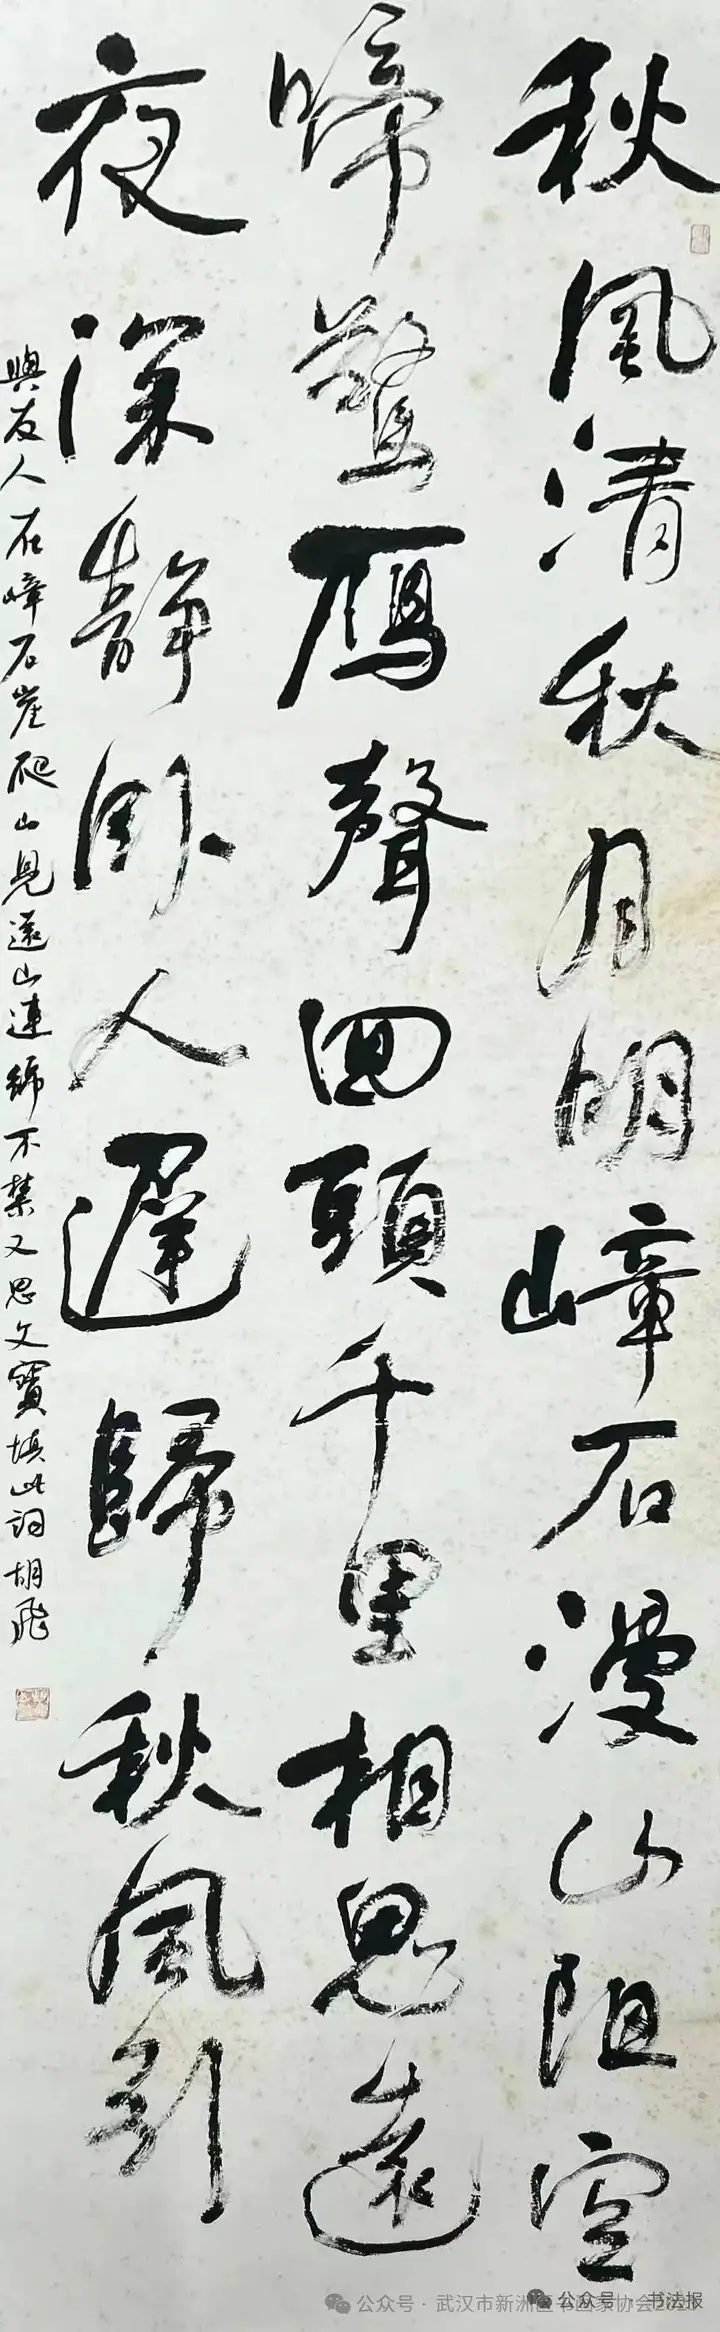 秋風清秋月明嶂石漫山阻空
啼驚雁聲回頭千里相思遠
夜深靜臥人遲歸秋風引
與友人石嶂石崖爬山見遠山連綿不禁又思文寶填此詞胡飛
公众号·武汉市新洲区书画家协会
公众号·书法报